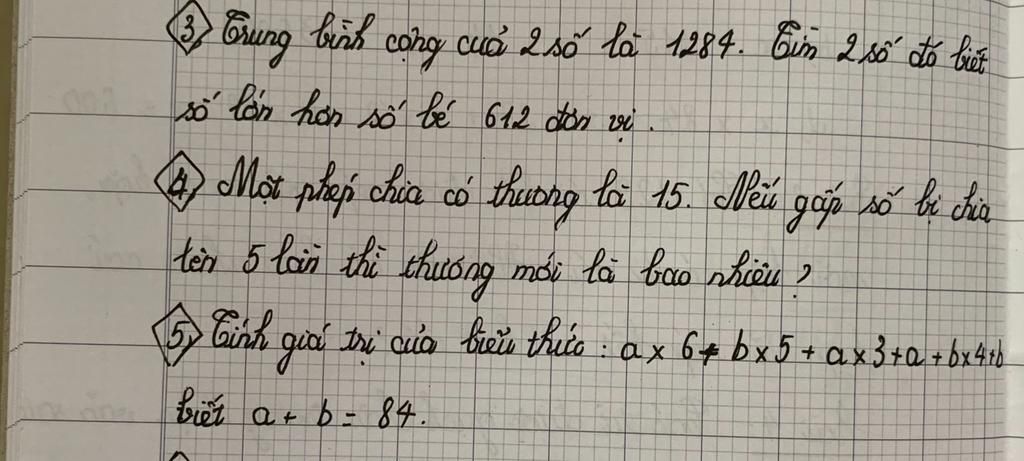 3, Trung bình cộng cuả 2 số là 1284. Tìm 2 số đó biết
số lớn hơn số bé 612 đơn vị.
4, Một phép chia có thương là 15. Nếu gấp số bị chia
lên 5 lần thì thương mới là bao nhiêu?
5, Tính giá trị của biểu thức: a x 6 + b x 5 + a x 3 + a + b x 4 + b
biết a + b = 84.